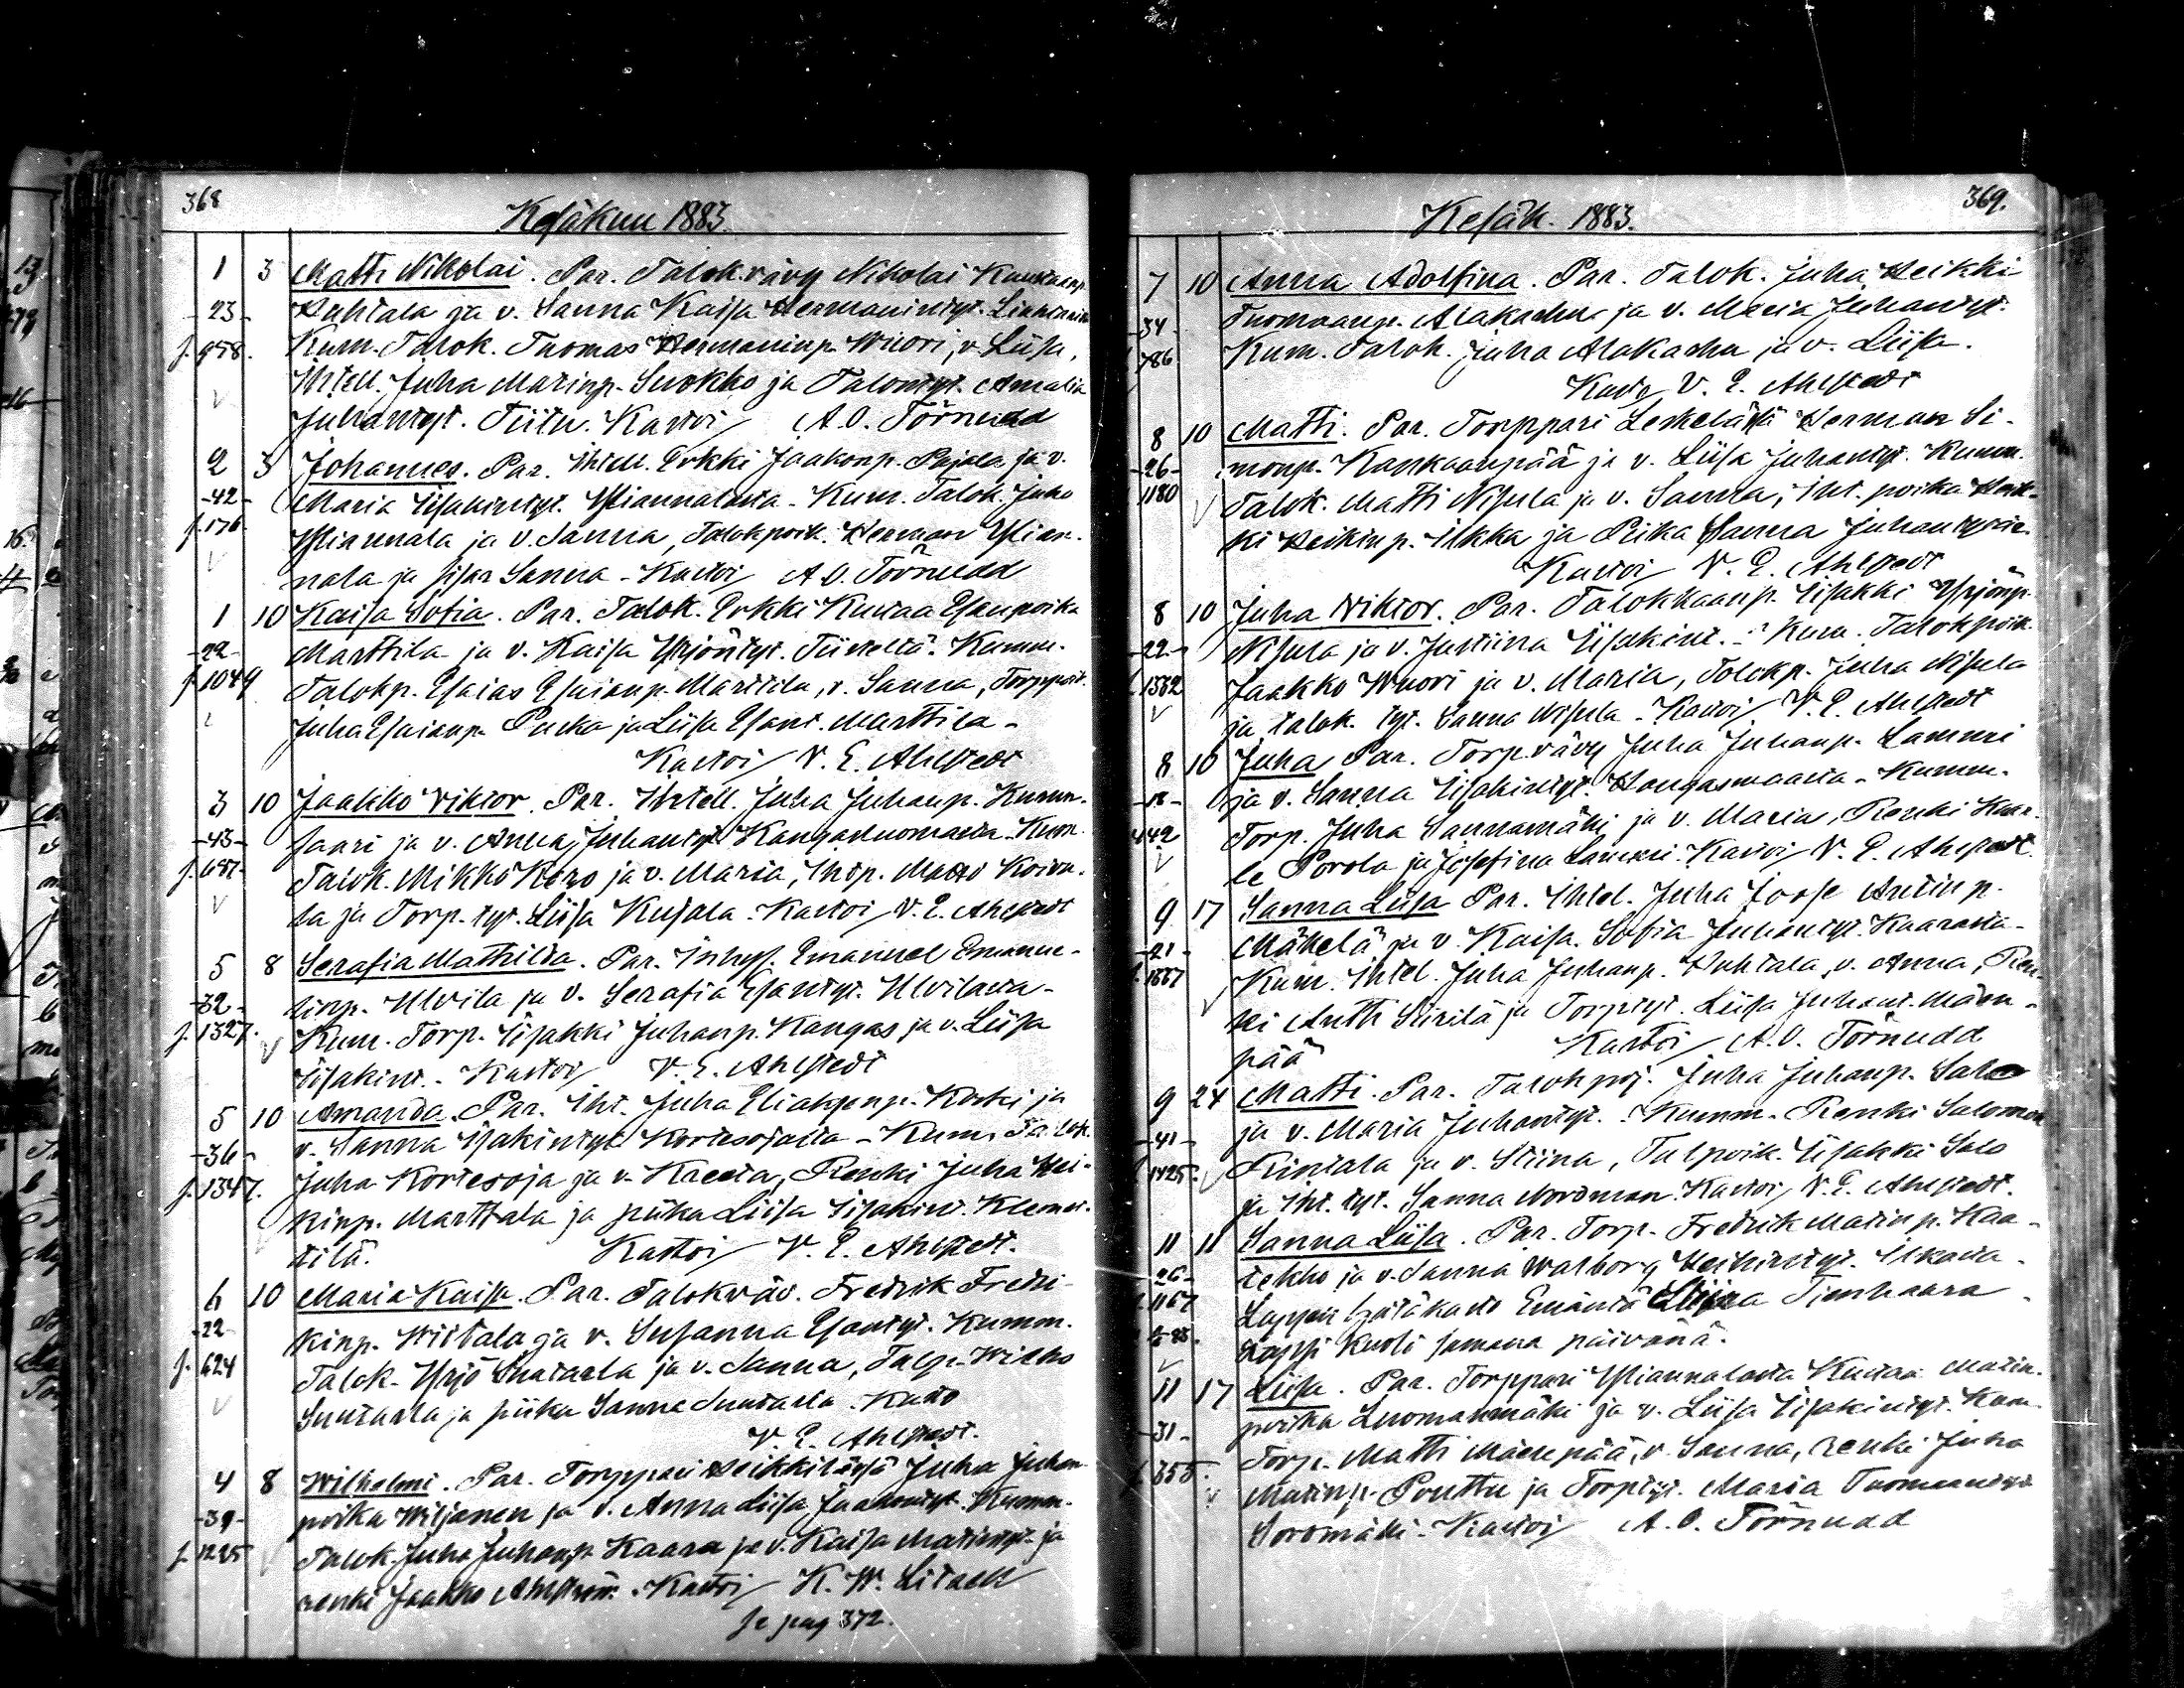 368
Kesäkuu 1883.
1 3 Matti Nikolai. Par. Talok.vävy Nikolai
-23- Puhtala ja v. Sanna Kaisa Hermanintyt.
f. 958. Kum. Talok. Tuomas Hermaninp. Wuori, v. Liisa,
Ihtell. Juha Matinp. Suokko ja Talontyt. Amalia
Juhantyt. Tiitu. Kastoi A.O. Törnudd
2 3 Johannes. Par. Ihtell. Erkki Jaakonp. Pajala ja v.
-42- Maria Iisakintyt. Yliannalasta - Kum. Talok. Juho
f. 176. Yliannala ja v. Sanna, Talokpoik. Herman Ylian-
nala ja sisar Sanna - Kastoi A.O. Törnudd
1 10 Kaisa Sofia. Par. Talok. Erkki Kustaa Esanpoika
-22- Marttila ja v. Kaisa Yrjöntyt. Kumm.
f. 1049 Talokp. Esaias Esaianp. Marttila, v. Sanna, Torppoik.
Juha Esaianp. ja Liisa Esant. Marttila -
Kastoi V.E. Ahlstedt
3 10 Jaakko Viktor. Par. Ihtell. Juha Juhanp.
-43- saari ja v. Anna Juhantyt. Kangasluomasta - Kum.
f. 687. Talok. Mikko ja v. Maria, Ihtp. Matti
la ja Torp. tyt. Liisa Kujala - Kastoi V.E. Ahlstedt
5 8 Serafia Mathilda. Par. Inhys. Emanuel Emanue-
-32- linp. Ulvila ja v. Serafia Esantyt. Ulvilasta -
f. 1327. Kum. Torp. Iisakki Juhanp. Kangas ja v. Liisa
Iisakint. - Kastoi V.E. Ahlstedt
5 10 Amanda. Par. Iht. Juha Eliaksenp. Koski ja
-36- v. Sanna Iisakintyt. Kortesojasta - Kum. Talok.
f. 1347. Juha Kortesoja ja v. Kreeta, Renki Juha Hei-
kinp. Marttala ja piika Liisa Iisakint. Klemet-
tilä. Kastoi V.E. Ahlstedt.
6 10 Maria Kaisa. Par. Talokväv. Fredrik Fredri-
-22- kinp. Wiitala ja v. Susanna Esantyt. Kumm.
f. 624 Talok. Yrjö Luutarla ja v. Sanna, Talp. Wilho
ja piika Sanna Kasto
V.E. Ahlstedt.
4 8 Wilhelmi. Par. Torppari Heikkilästä Juha Juhan-
-39- poika Wiljanen ja v. Anna Liisa Jaakontyt. Kumm.
f. 1225 Talok. Juha Juhanp. Kaara ja v. Kaisa Matintyt. ja
renki Jaakko Ahlström. Kastoi K.W. Litzell
se pag 372.
369.
Kesäk. 1883.
7 10 Anna Adolfina. Par. Talok. Juha Heikki
-34- Tuomaanp. Alakashu ja v. Maria Juhantyt.
786 Kum. Talok. Juha Alakashu ja v. Liisa.
Kasto V.E. Ahlstedt
8 10 Matti. Par. Torppari Leskelästä Herman Si-
-26- monp. Kankaanpää ja v. Liisa Juhantyt. Kumm.
1180 Talok. Matti Nisula ja v. Sanna, Iht. poika Heik-
ki Heikinp. Ilkka ja Piika Sanna
Kastoi V.E. Ahlstedt
8 10 Juha Viktor. Par. Talokkaanp. Iisakki Yrjönp.
-22- Nisula ja v. Justiina Iisakint. - Kum. Talokpoik.
1332 Jaakko Wuori ja v. Maria, Talokp. Juha Nisula
ja talok. tyt. Sanna Nisula - Kastoi V.E. Ahlstedt
8 10 Juha Par. Torp.vävy Juha Juhanp. Lammi
ja v. Sanna Iisakintyt. Hangasmaasta - Kumm.
442 Torp. Juha Sannamäki ja v. Maria, Renki Kaar-
le Porola ja Josefina Lammi. Kastoi V.E. Ahlstedt.
9 17 Sanna Liisa Par. Ihtel. Juha Joose Antinp.
-21- Mäkelä ja v. Kaisa Sofia Juhantyt. Kaarasta -
1667 Kum. Ihtel. Juha Juhanp. Puhtala, v. Anna, Ren-
ki Antti Siirilä ja Torptyt. Liisa Juhant. Mäen-
pää Kastoi A.O. Törnudd
9 24 Matti. Par. Talokpoj. Juha Juhanp. Salo
-41- ja v. Maria Juhantyt. - Kumm. Renki Salomon
1425. Rintala ja v. Stiina, Talpoik. Iisakki Salo
ja Iht. tyt. Sanna Nordman. Kastoi V.E. Ahlstedt.
11 11 Sanna Liisa. Par. Torp. Fredrik Matinp. Kaa-
-26- tekko ja v. Sanna Walborg Heikintyt. Ilkasta.
1167 Lappen hätäkasto Emäntä Tienhaara
Lapsi kuoli samana päivänä.
11 17 Liisa. Par. Torppari Yliannalasta Kustaa Matin-
-31- poika Luomanmäki ja v. Liisa Iisakintyt. Kum.
355. Torp. Matti Mäenpää, v. Sanna, renki Juha
Matinp. Pouttu ja Torptyt. Maria Tuomaantyt
Soromäki - Kastoi A.O. Törnudd